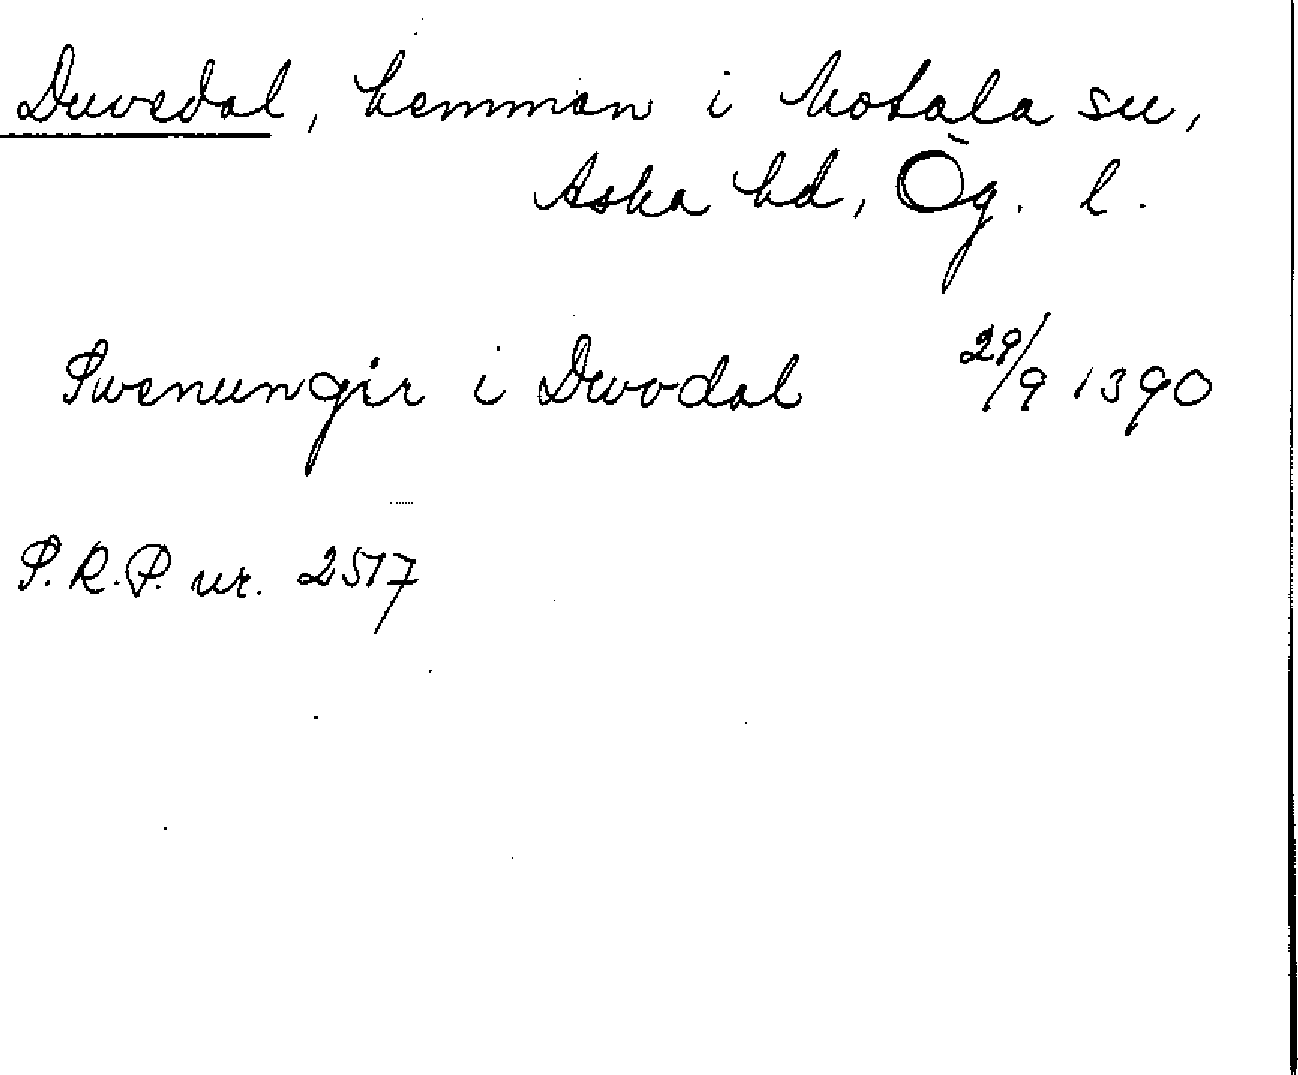 Duvedal, hemman i Motala sn,
Aska hd, Ög. l.
Swenungir i Dwodal 29/9 1390
S.R.P. nr. 2517